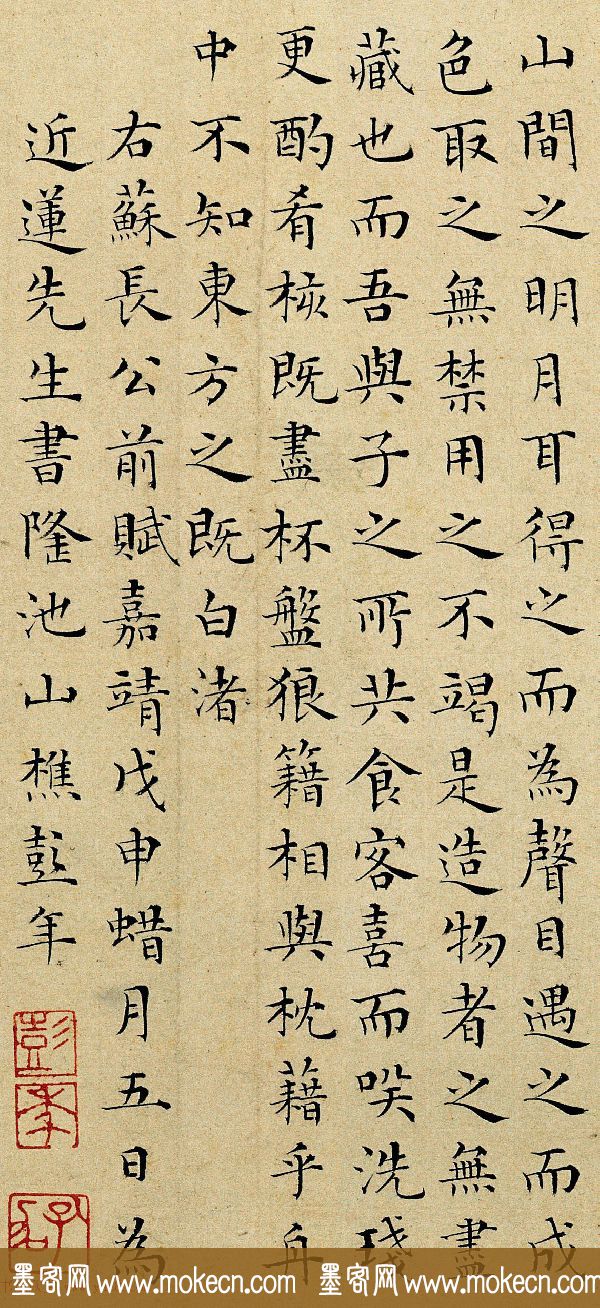 山間之明月耳得之而為聲目遇之而成
色取之無禁用之不竭是造物者之無盡
藏也而吾與子之所共食客喜而咲洗琖
更酌肴核既盡杯盤狼籍相與枕藉乎舟
中不知東方之既白渚
右蘇長公前賦嘉靖戊申蜡月五日為
近蓮先生書隆池山樵彭年
彭年
墨客网 www.mokecn.com 墨客网 www.mokecn.com